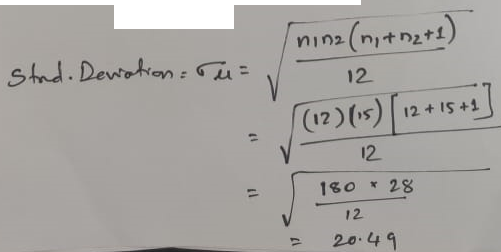 Stnd. Deviation = σu = √(n1n2(n1+n2+1) / 12)
= √((12)(15)[12+15+1] / 12)
= √(180 * 28 / 12)
= 20.49